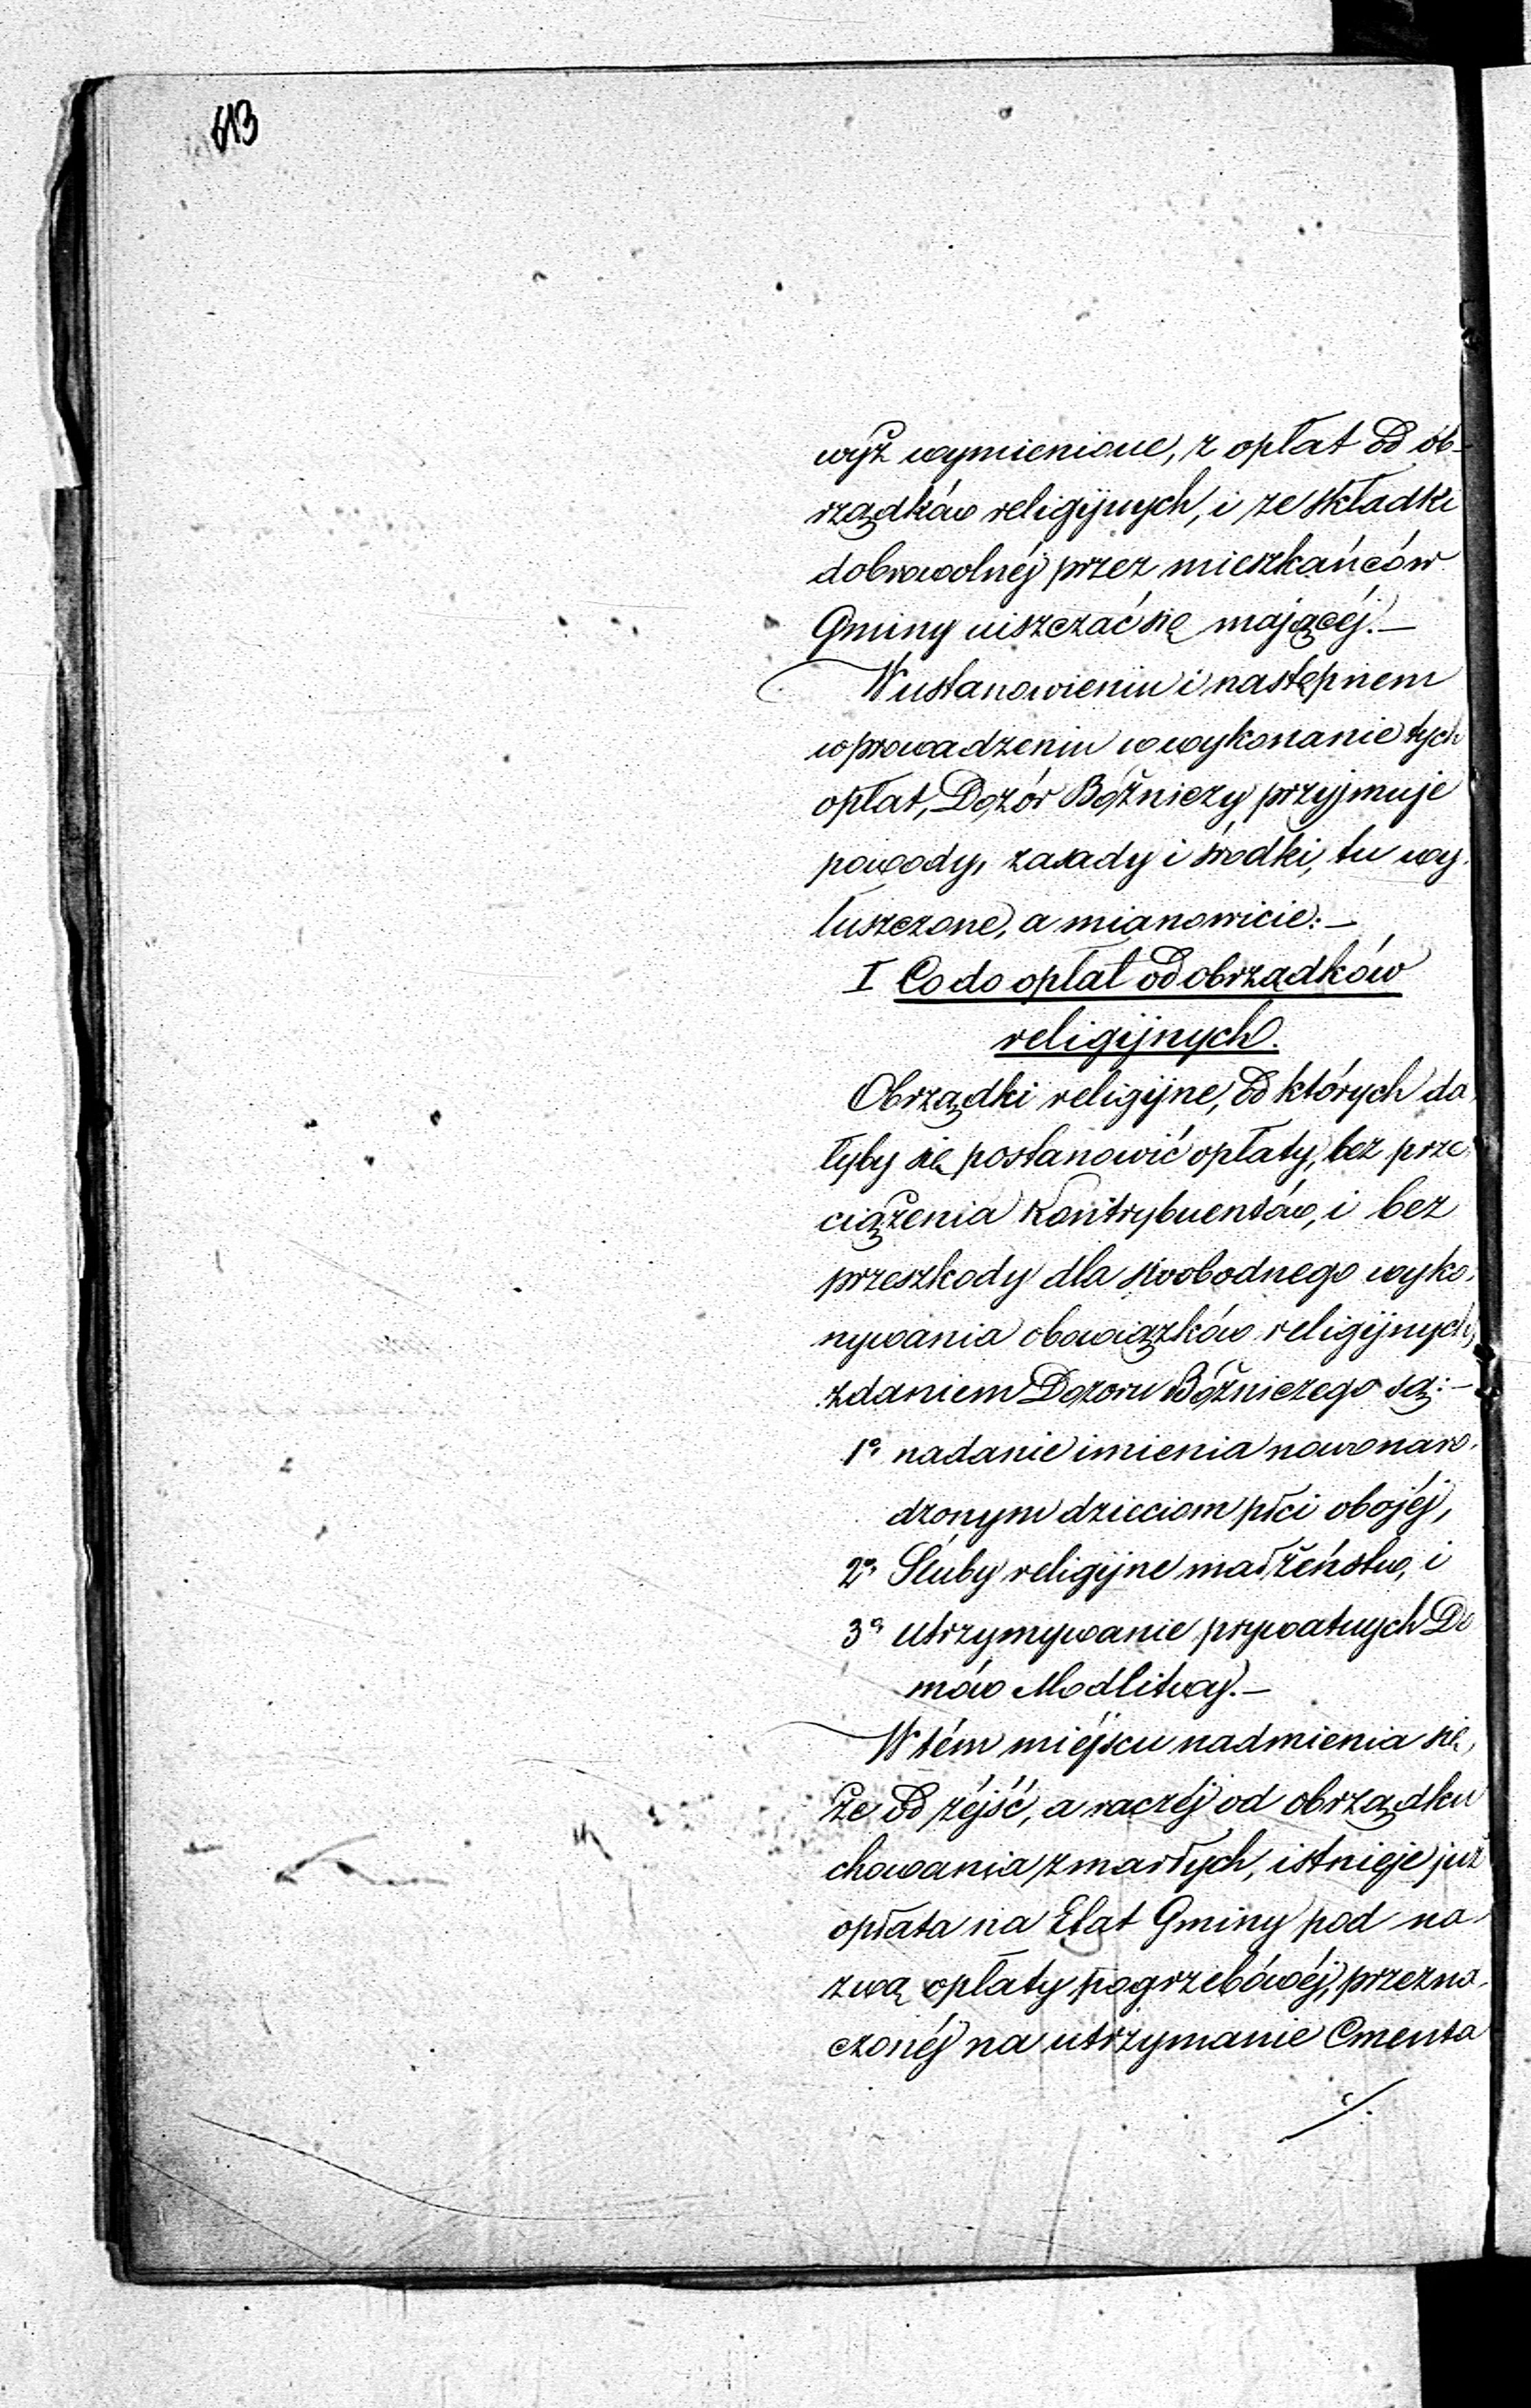 613
wyż wymienione, z opłat od ob-
rządków religijnych, i ze składki
dobrowolnéj przez mieszkańców
Gminy uiszczać się mającéj.—
W ustanowieniu i następnem
wprowadzeniu w wykonanie tych
opłat, Dozór Bóżniczy przyjmuje
powody, zasady i środki, tu wy-
łuszczone, a mianowicie:—
I Co do opłat od obrządków
religijnych.
Obrządki religijne, od których da
łyby się postanowić opłaty, bez prze
ciążenia Kontrybuentów, i bez
przeszkody dla swobodnego wyko-
nywania obowiązków religijnych,
zdaniem Dozoru Bóżniczego są:—
1o nadanie imienia nowonaro-
dzonym dzieciom płci obojéj,
2o Śluby religijne małżeństw, i
3o Utrzymywanie prywatnych Do
mów Modlitwy.—
W tém miéjscu nadmienia się,
że od zéjść, a raczéj od obrządku
chowania zmarłych, istnieje już
opłata na Etat Gminy pod na-
zwą opłaty pogrzebowéj, przezna-
czonéj na utrzymanie Cmenta
./.